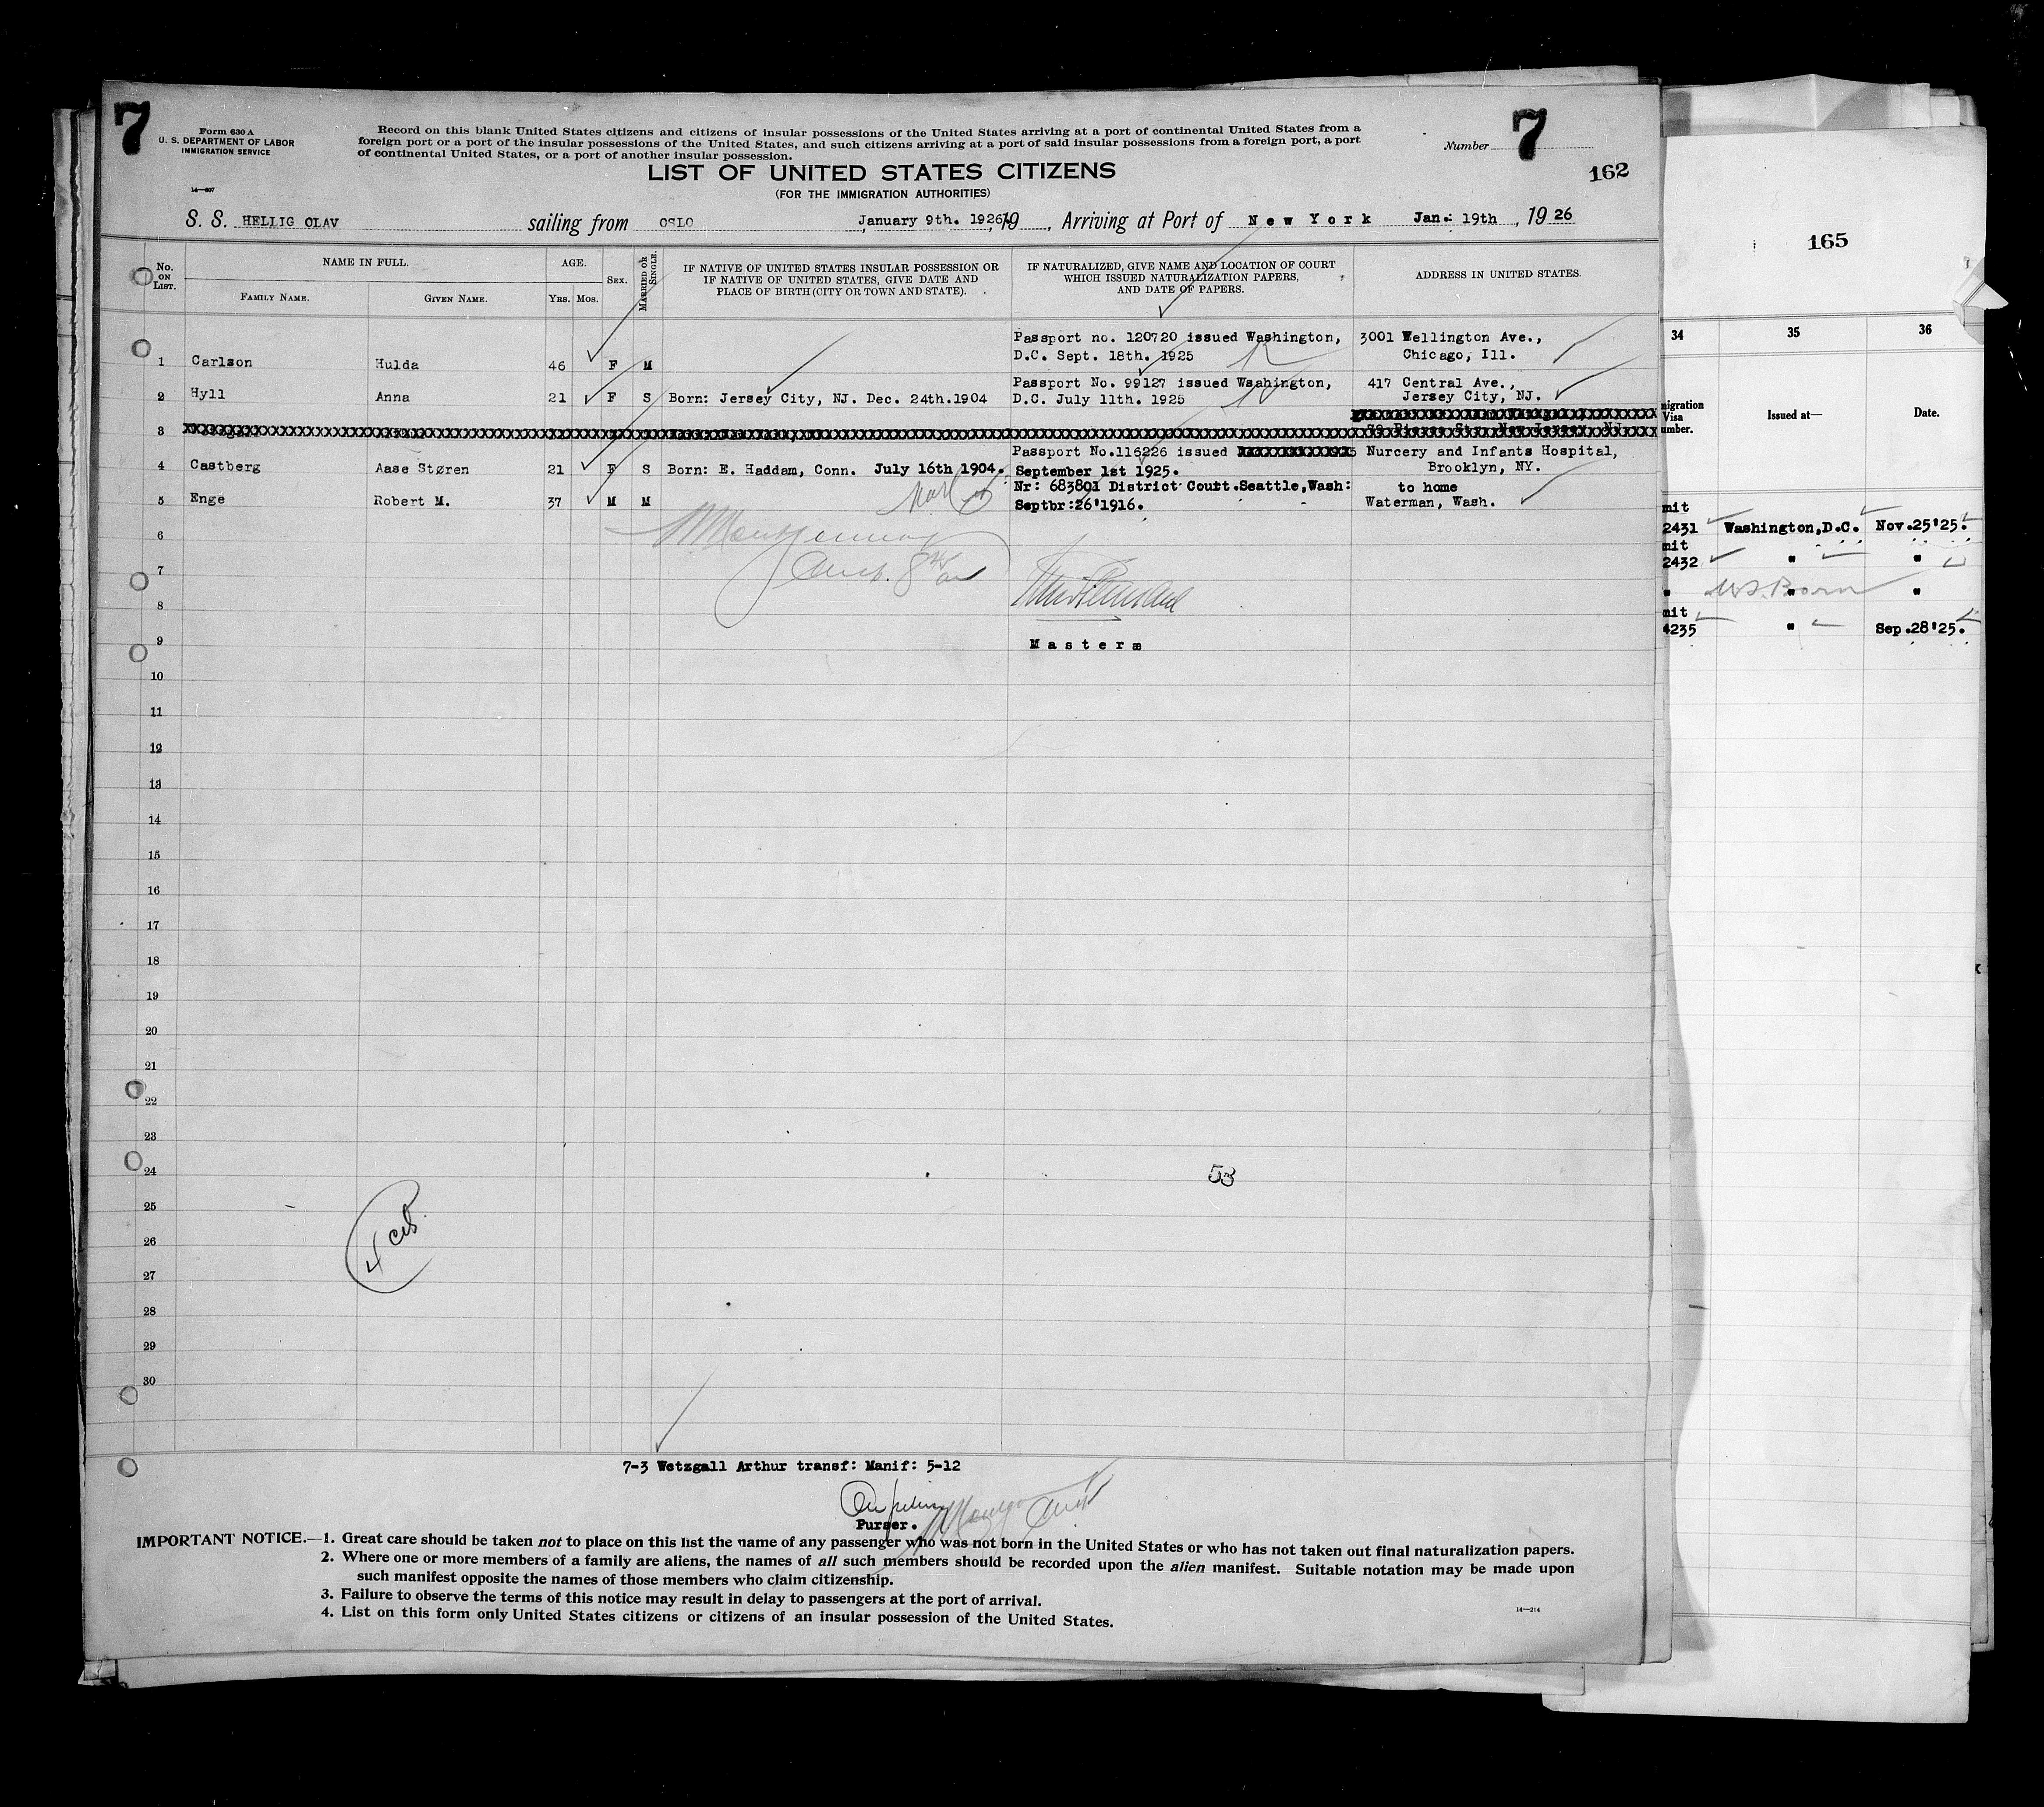 7
Form 630 A
U. S. DEPARTMENT OF LABOR
IMMIGRATION SERVICE
14—607
Record on this blank United States citizens and citizens of insular possessions of the United States arriving at a port of continental United States from a
foreign port or a port of the insular possessions of the United States, and such citizens arriving at a port of said insular possessions from a foreign port, a port
of continental United States, or a port of another insular possession.
Number 7
162
LIST OF UNITED STATES CITIZENS
(FOR THE IMMIGRATION AUTHORITIES)
S. S. HELLIG OLAV sailing from OSLO January 9th. 1926, 19 , Arriving at Port of New York Jan: 19th , 19 26
No. ON LIST.
NAME IN FULL.
FAMILY NAME.
GIVEN NAME.
AGE.
YRS. MOS.
SEX.
MARRIED OR SINGLE.
IF NATIVE OF UNITED STATES INSULAR POSSESSION OR
IF NATIVE OF UNITED STATES, GIVE DATE AND
PLACE OF BIRTH (CITY OR TOWN AND STATE).
IF NATURALIZED, GIVE NAME AND LOCATION OF COURT
WHICH ISSUED NATURALIZATION PAPERS,
AND DATE OF PAPERS.
ADDRESS IN UNITED STATES.
1 Carlson Hulda 46 F M Passport no. 120720 issued Washington, 3001 Wellington Ave.,
D.C. Sept. 18th. 1925 Chicago, Ill.
2 Hyll Anna 21 F S Born: Jersey City, NJ. Dec. 24th.1904 Passport No. 99127 issued Washington, 417 Central Ave.,
D.C. July 11th. 1925 Jersey City, NJ.
3
4 Castberg Aase Støren 21 F S Born: E. Haddam, Conn. July 16th 1904. Passport No.116226 issued Nurcery and Infants Hospital,
September 1st 1925. Brooklyn, NY.
5 Enge Robert M. 37 M M Nr: 683801 District Court.Seattle,Wash: to home
Septbr:26'1916. Waterman, Wash.
6
7
8
9 Master
10
11
12
13
14
15
16
17
18
19
20
21
22
23
24 53
25
26
27
28
29
30
7-3 Wetzgall Arthur transf: Manif: 5-12
Purser.
IMPORTANT NOTICE.—1. Great care should be taken not to place on this list the name of any passenger who was not born in the United States or who has not taken out final naturalization papers.
2. Where one or more members of a family are aliens, the names of all such members should be recorded upon the alien manifest. Suitable notation may be made upon
such manifest opposite the names of those members who claim citizenship.
3. Failure to observe the terms of this notice may result in delay to passengers at the port of arrival.
4. List on this form only United States citizens or citizens of an insular possession of the United States.
14—214
165
34 35 36
migration
Visa
umber.
Issued at—
Date.
mit
2431 Washington,D.C. Nov.25'25.
mit
2432 " "
" U.S. Born "
mit
4235 " Sep.28'25.